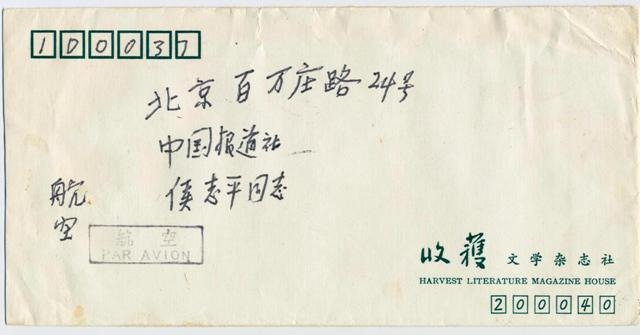 100037
北京百万庄路24号
中国报道社
侯志平同志
航空
航空
PAR AVION
收穫 文学杂志社
HARVEST LITERATURE MAGAZINE HOUSE
200040